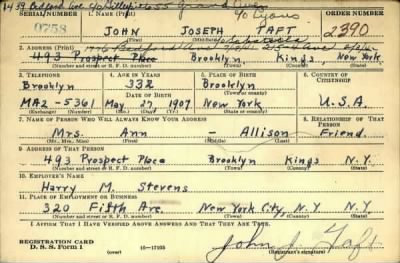 1439 Bedford Ave c/o 655 Grand Ave
SERIAL NUMBER 1. NAME (Print) c/o Lyons ORDER NUMBER
0758 JOHN JOSEPH TAFT 2390
(First) (Middle) (Last)
2. ADDRESS (Print)
493 Prospect Place Brooklyn, Kings, New York
(Number and street or R. F. D. number) (Town) (County) (State)
3. TELEPHONE 4. AGE IN YEARS 5. PLACE OF BIRTH 6. COUNTRY OF CITIZENSHIP
Brooklyn 33 Brooklyn
DATE OF BIRTH (Town or county)
MA2-5361 May 27 1907 New York U.S.A.
(Exchange) (Number) (Mo.) (Day) (Yr.) (State or country)
7. NAME OF PERSON WHO WILL ALWAYS KNOW YOUR ADDRESS 8. RELATIONSHIP OF THAT PERSON
Mrs. Ann - Allison Friend.
(Mr., Mrs., Miss) (First) (Middle) (Last)
9. ADDRESS OF THAT PERSON
493 Prospect Place Brooklyn Kings N.Y.
(Number and street or R. F. D. number) (Town) (County) (State)
10. EMPLOYER'S NAME
Harry M. Stevens
11. PLACE OF EMPLOYMENT OR BUSINESS
320 Fifth Ave. New York City, N.Y. N.Y.
(Number and street or R. F. D. number) (Town) (County) (State)
I AFFIRM THAT I HAVE VERIFIED ABOVE ANSWERS AND THAT THEY ARE TRUE.
REGISTRATION CARD
D. S. S. Form 1 (over) 16-17105 John J. Taft
(Registrant's signature)